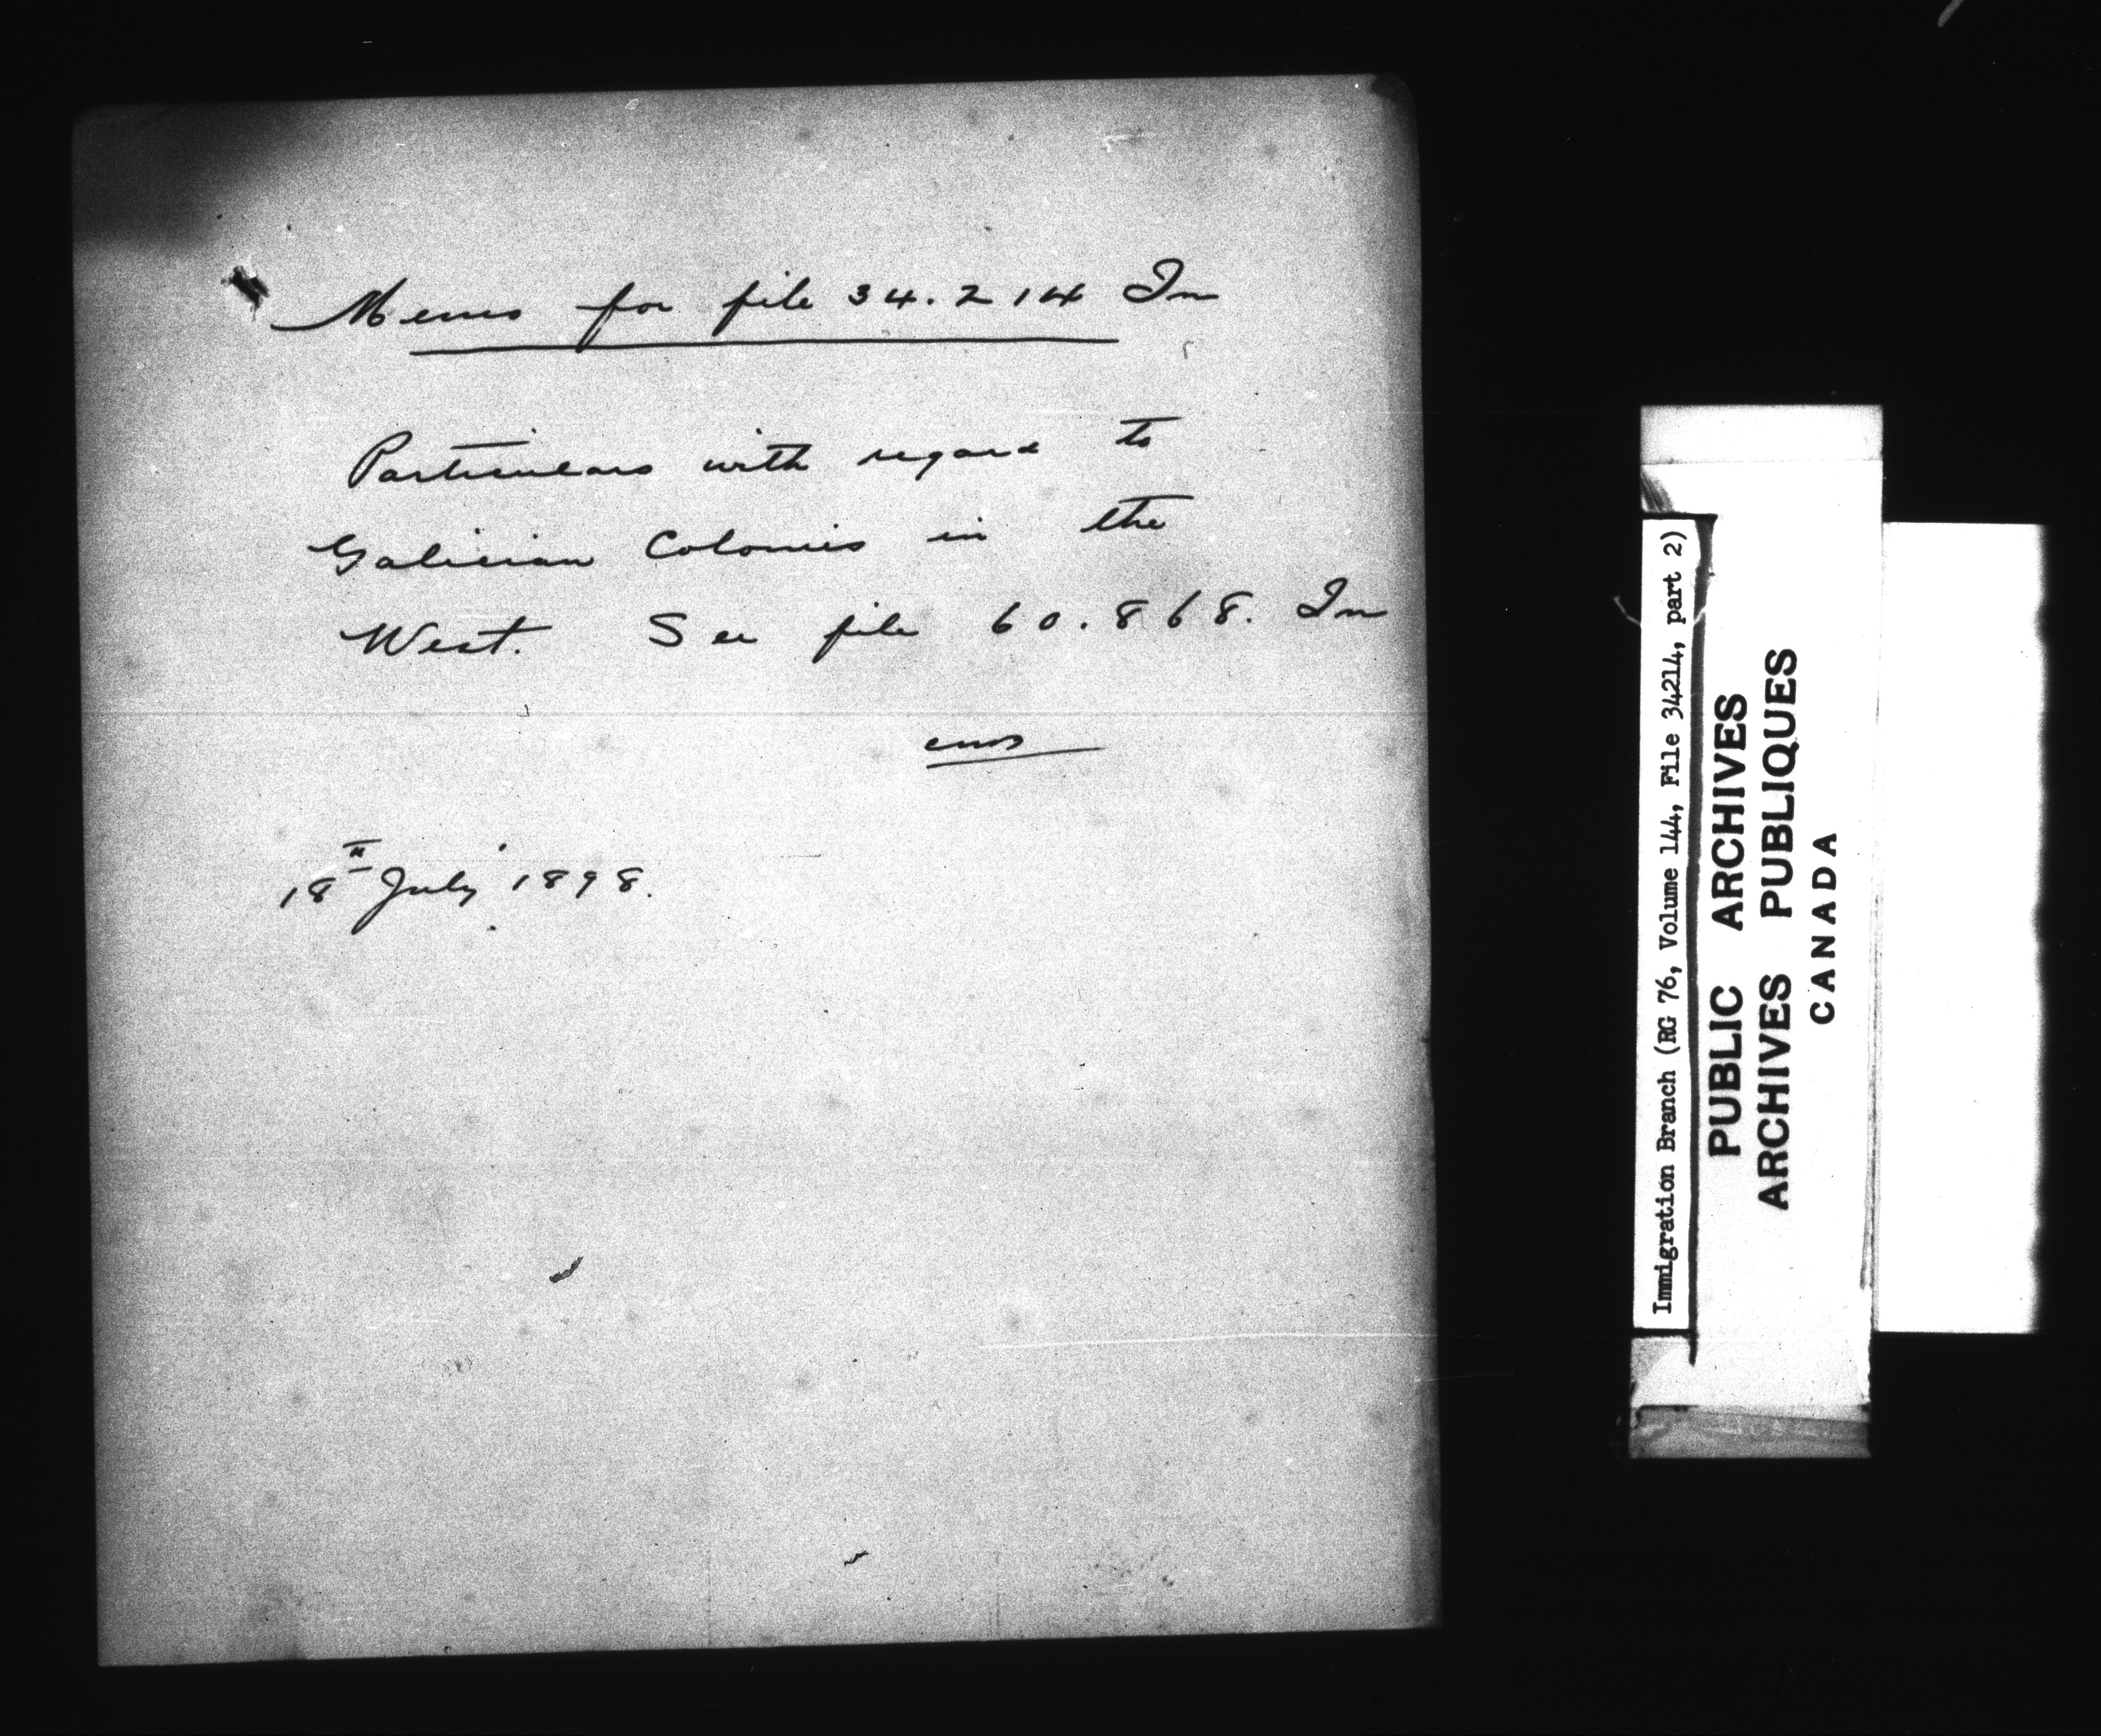 Memo for file 34.214 Im
Particulars with regard to
Galician Colonies in the
West. See file 60.868. Im
18th July 1898.
Immigration Branch (RG 76, Volume 144, File 34214, part 2)
PUBLIC ARCHIVES
ARCHIVES PUBLIQUES
CANADA